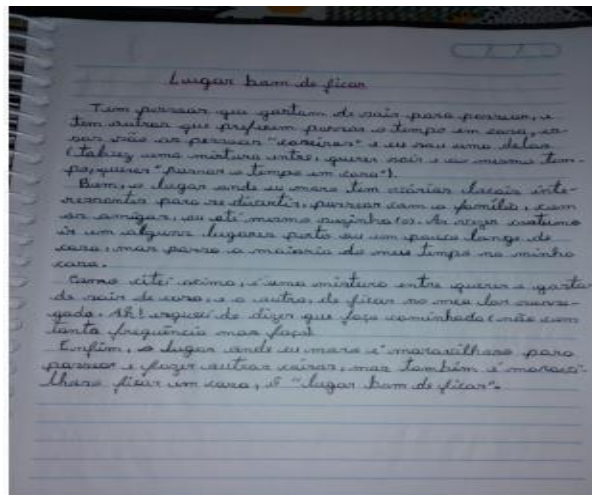 Lugar bom de ficar
Tem pessoas que gostam de sair para passear, e
tem outras que preferem passar o tempo em casa, es-
sas são as pessoas "caseiras" e eu sou uma delas
(talvez uma mistura entre, querer sair e ao mesmo tem-
po, querer "passar o tempo em casa").
Bom, o lugar onde eu moro tem vários locais inte-
ressantes para se divertir, passear com a família, com
os amigos, ou até mesmo sozinho(a). Às vezes costumo
ir em alguns lugares perto ou um pouco longe de
casa, mas passo a maioria do meu tempo na minha
casa.
Como citei acima, é uma mistura entre querer e gostar
de sair de casa, e a outra, de ficar no meu lar sosse-
gada. Ah! esqueci de dizer que faço caminhada (não com
tanta frequência mas faço)
Enfim, o lugar onde eu moro é maravilhoso para
passear e fazer outras coisas, mas também é maravi-
lhoso ficar em casa, é "lugar bom de ficar".